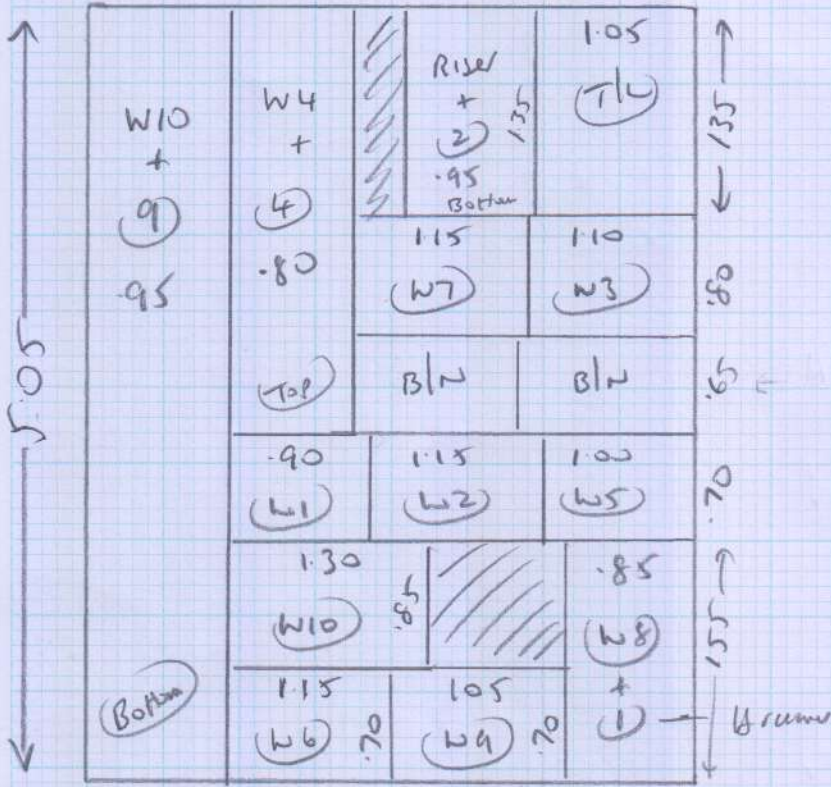 5.05
W10
+
9
.95
Bottom
W4
+
4
.80
Top
Riser
+
2
1.35
.95
Bottom
1.05
T/L
135
1.15
W7
1.10
W3
.80
B/N
B/N
.65
.90
W1
1.15
W2
1.00
W5
.70
1.30
W10
.85
.85
W8
+
1
155
1.15
W6
.70
105
W9
.70